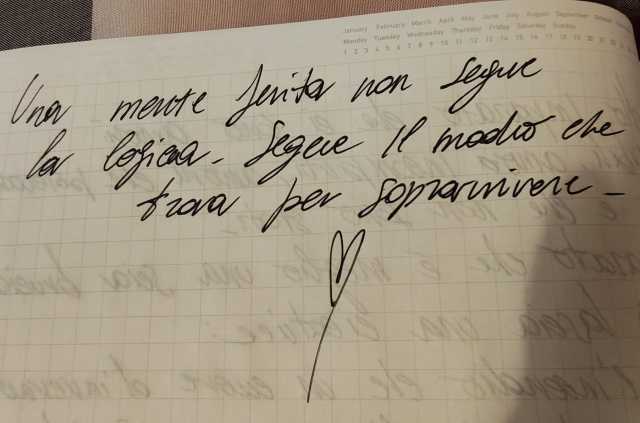 January February March April May June July August September October
Monday Tuesday Wednesday Thursday Friday Saturday Sunday
1 2 3 4 5 6 7 8 9 10 11 12 13 14 15 16 17 18 19 20 21
Una mente ferita non segue
la logica. Segue il modo che
trova per sopravvivere -